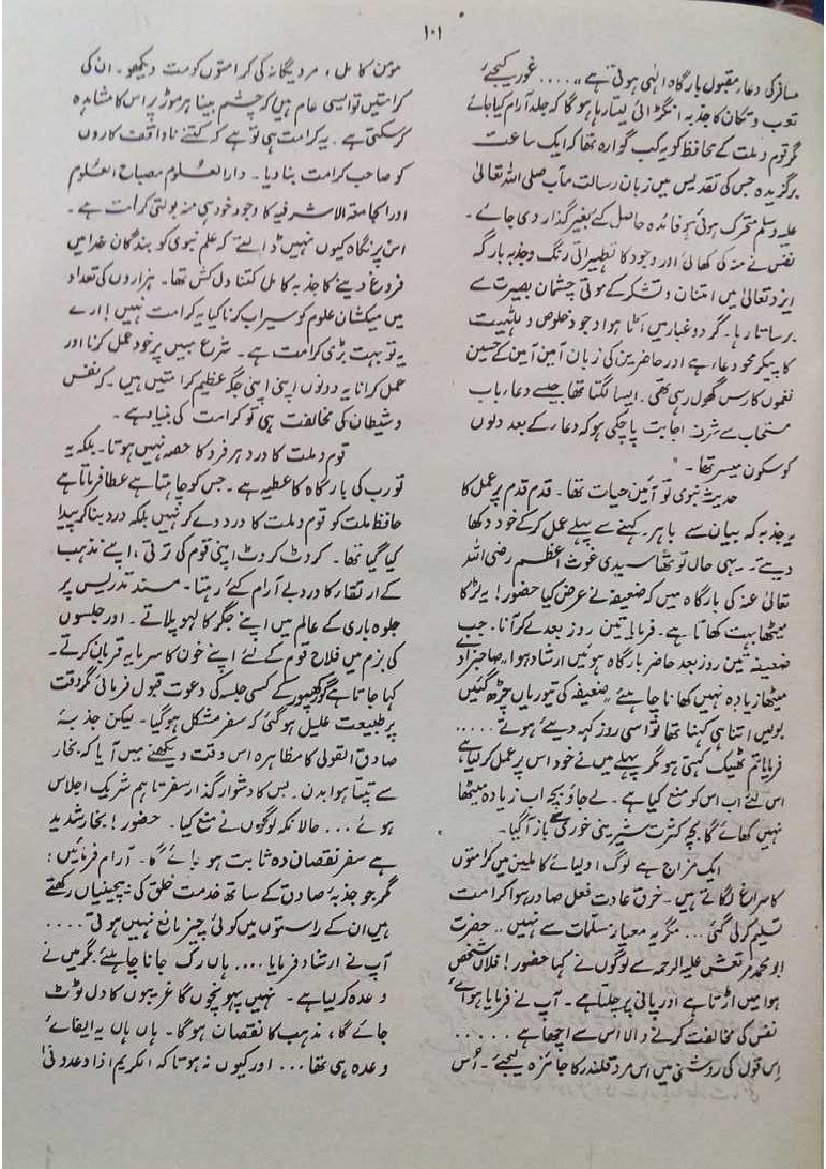 ۱۰۱
مسافر کی دعاء مقبول بارگاہ الٰہی ہوتی ہے ،،..... غور کیجئے
تعب و تکان کا جذبہ انگڑائی لیتا رہا ہوگا کہ جلد آرام کیا جائے
مگر قوم و ملت کے محافظ کو یہ کب گوارہ تھا کہ ایک ساعت
برگزیدہ جس کی تقدیس میں زبان رسالت مآب صلی اللہ تعالیٰ
علیہ وسلم متحرک ہوئی ہو فائدہ حاصل کے بغیر گذار دی جائے ۔
نفس نے منہ کی کھائی اور وجود کا تطہیراتی رنگ و جذبہ بارگہ
ایزد تعالیٰ میں امتنان و تشکر کے موتی چشمان بصیرت سے
برساتا رہا ۔ گرد و غبار میں اٹا ہوا وجود خلوص و للہیت
کا پیکر محو دعاء ہے اور حاضرین کی زبان آمین آمین کے حسین
نغموں کا رس گھول رہی تھی ۔ ایسا لگتا تھا جیسے دعاء باب
مستجاب سے شرف اجابت پا چکی ہو کہ دعاء کے بعد دلوں
کو سکون میسر تھا ۔
حدیث نبوی تو آئین حیات تھا ۔ قدم قدم پر عمل کا
یہ جذبہ کہ بیان سے باہر ۔ کہنے سے پہلے عمل کرکے خود دکھا
دیتے ۔ یہی حال تو تھا سیدی غوث اعظم رضی اللہ
تعالیٰ عنہ کی بارگاہ میں کہ ضعیفہ نے عرض کیا حضور ! یہ لڑکا
میٹھا بہت کھاتا ہے ۔ فرمایا تین روز بعد لے کر آنا ۔ جب
ضعیفہ تین روز بعد حاضر بارگاہ ہوئیں ارشاد ہوا ،، صاحبزادے
میٹھا زیادہ نہیں کھانا چاہئے ،، ضعیفہ کی تیوریاں چڑھ گئیں
بولیں اتنا ہی کہنا تھا تو اسی روز کہہ دیئے ہوتے .....
فرمایا تم ٹھیک کہتی ہو مگر پہلے میں نے خود اس پر عمل کر لیا ہے
اس لئے اب اس کو منع کیا ہے ۔ لے جاؤ بچہ اب زیادہ میٹھا
نہیں کھائے گا بچہ کثرت شیرینی خوری سے باز آگیا ۔
ایک مزاج ہے لوگ اولیائے کاملین میں کرامتوں
کا سراغ لگاتے ہیں ۔ خرق عادت فعل صادر ہوا کرامت
تسلیم کرلی گئی ... مگر یہ معیار مسلمات سے نہیں .. حضرت
ابو محمد مرتعش علیہ الرحمہ سے لوگوں نے کہا حضور ! فلاں شخص
ہوا میں اڑتا ہے اور پانی پر چلتا ہے ۔ آپ نے فرمایا ہوائے
نفس کی مخالفت کرنے والا اس سے اچھا ہے .....
اس قول کی روشنی میں اس مرد قلندر کا جائزہ لیجئے ۔ اس
مؤمن کامل ، مرد یگانہ کی کرامتوں کو مت دیکھو ۔ ان کی
کرامتیں تو ایسی عام ہیں کہ چشم بینا ہر موڑ پر اس کا مشاہدہ
کرسکتی ہے ۔ یہ کرامت ہی تو ہے کہ کتنے ناواقف کاروں
کو صاحب کرامت بنا دیا ۔ دارالعلوم مصباح العلوم
اور الجامعۃ الاشرفیہ کا وجود خود ہی منہ بولتی کرامت ہے ۔
اس پر نگاہ کیوں نہیں ڈالتے کہ علم نبوی کو بندگان خدا میں
فروغ دینے کا جذبہ کامل کتنا دل کش تھا ۔ ہزاروں کی تعداد
میں میکشان علوم کو سیراب کرنا کیا یہ کرامت نہیں ! ارے
یہ تو بہت بڑی کرامت ہے ۔ شرع مبیں پر خود عمل کرنا اور
عمل کرانا یہ دونوں اپنی اپنی جگہ عظیم کرامتیں ہیں ۔ کہ نفس
و شیطان کی مخالفت ہی تو کرامت کی بنیاد ہے ۔
قوم و ملت کا درد ہر فرد کا حصہ نہیں ہوتا ۔ بلکہ یہ
تو رب کی بارگاہ کا عطیہ ہے ۔ جس کو چاہتا ہے عطا فرماتا ہے
حافظ ملت کو قوم و ملت کا درد دے کر نہیں بلکہ درد بنا کر پیدا
کیا گیا تھا ۔ کروٹ کروٹ اپنی قوم کی ترقی ، اپنے مذہب
کے ارتقاء کا درد بے آرام کئے رہتا ۔ مسند تدریس پر
جلوہ باری کے عالم میں اپنے جگر کا لہو پلاتے ۔ اور جلسوں
کی بزم میں فلاح قوم کے لئے اپنے خون کا سرمایہ قربان کرتے ۔
کہا جاتا ہے گورکھپور کے کسی جلسہ کی دعوت قبول فرمائی مگر وقت
پر طبیعت علیل ہوگئی کہ سفر مشکل ہوگیا ۔ لیکن جذبۂ
صادق القولی کا مظاہرہ اس وقت دیکھنے میں آیا کہ بخار
سے تپتا ہوا بدن ۔ بس کا دشوار گذار سفر تاہم شریک اجلاس
ہوئے ... حالانکہ لوگوں نے منع کیا ۔ حضور ! بخار شدید
ہے سفر نقصان دہ ثابت ہو جائے گا ۔ آرام فرمائیں ؛
مگر جو جذبۂ صادق کے ساتھ خدمت خلق کی بے چینیاں رکھتے
ہیں ان کے راستوں میں کوئی چیز مانع نہیں ہوتی ....
آپ نے ارشاد فرمایا .... ہاں رک جانا چاہئے ، مگر میں نے
وعدہ کر لیا ہے ۔ نہیں پہونچوں گا غریبوں کا دل ٹوٹ
جائے گا ، مذہب کا نقصان ہوگا ۔ ہاں ہاں یہ ایفائے
وعدہ ہی تھا ... اور کیوں نہ ہوتا کہ الکریم اذا وعد وفیٰ